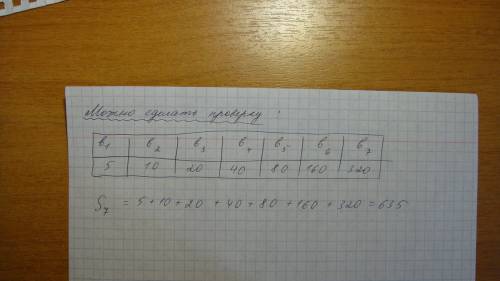 Можно сделать проверку:
в1 в2 в3 в4 в5 в6 в7
5 10 20 40 80 160 320
S7 = 5+10+20+40+80+160+320=635